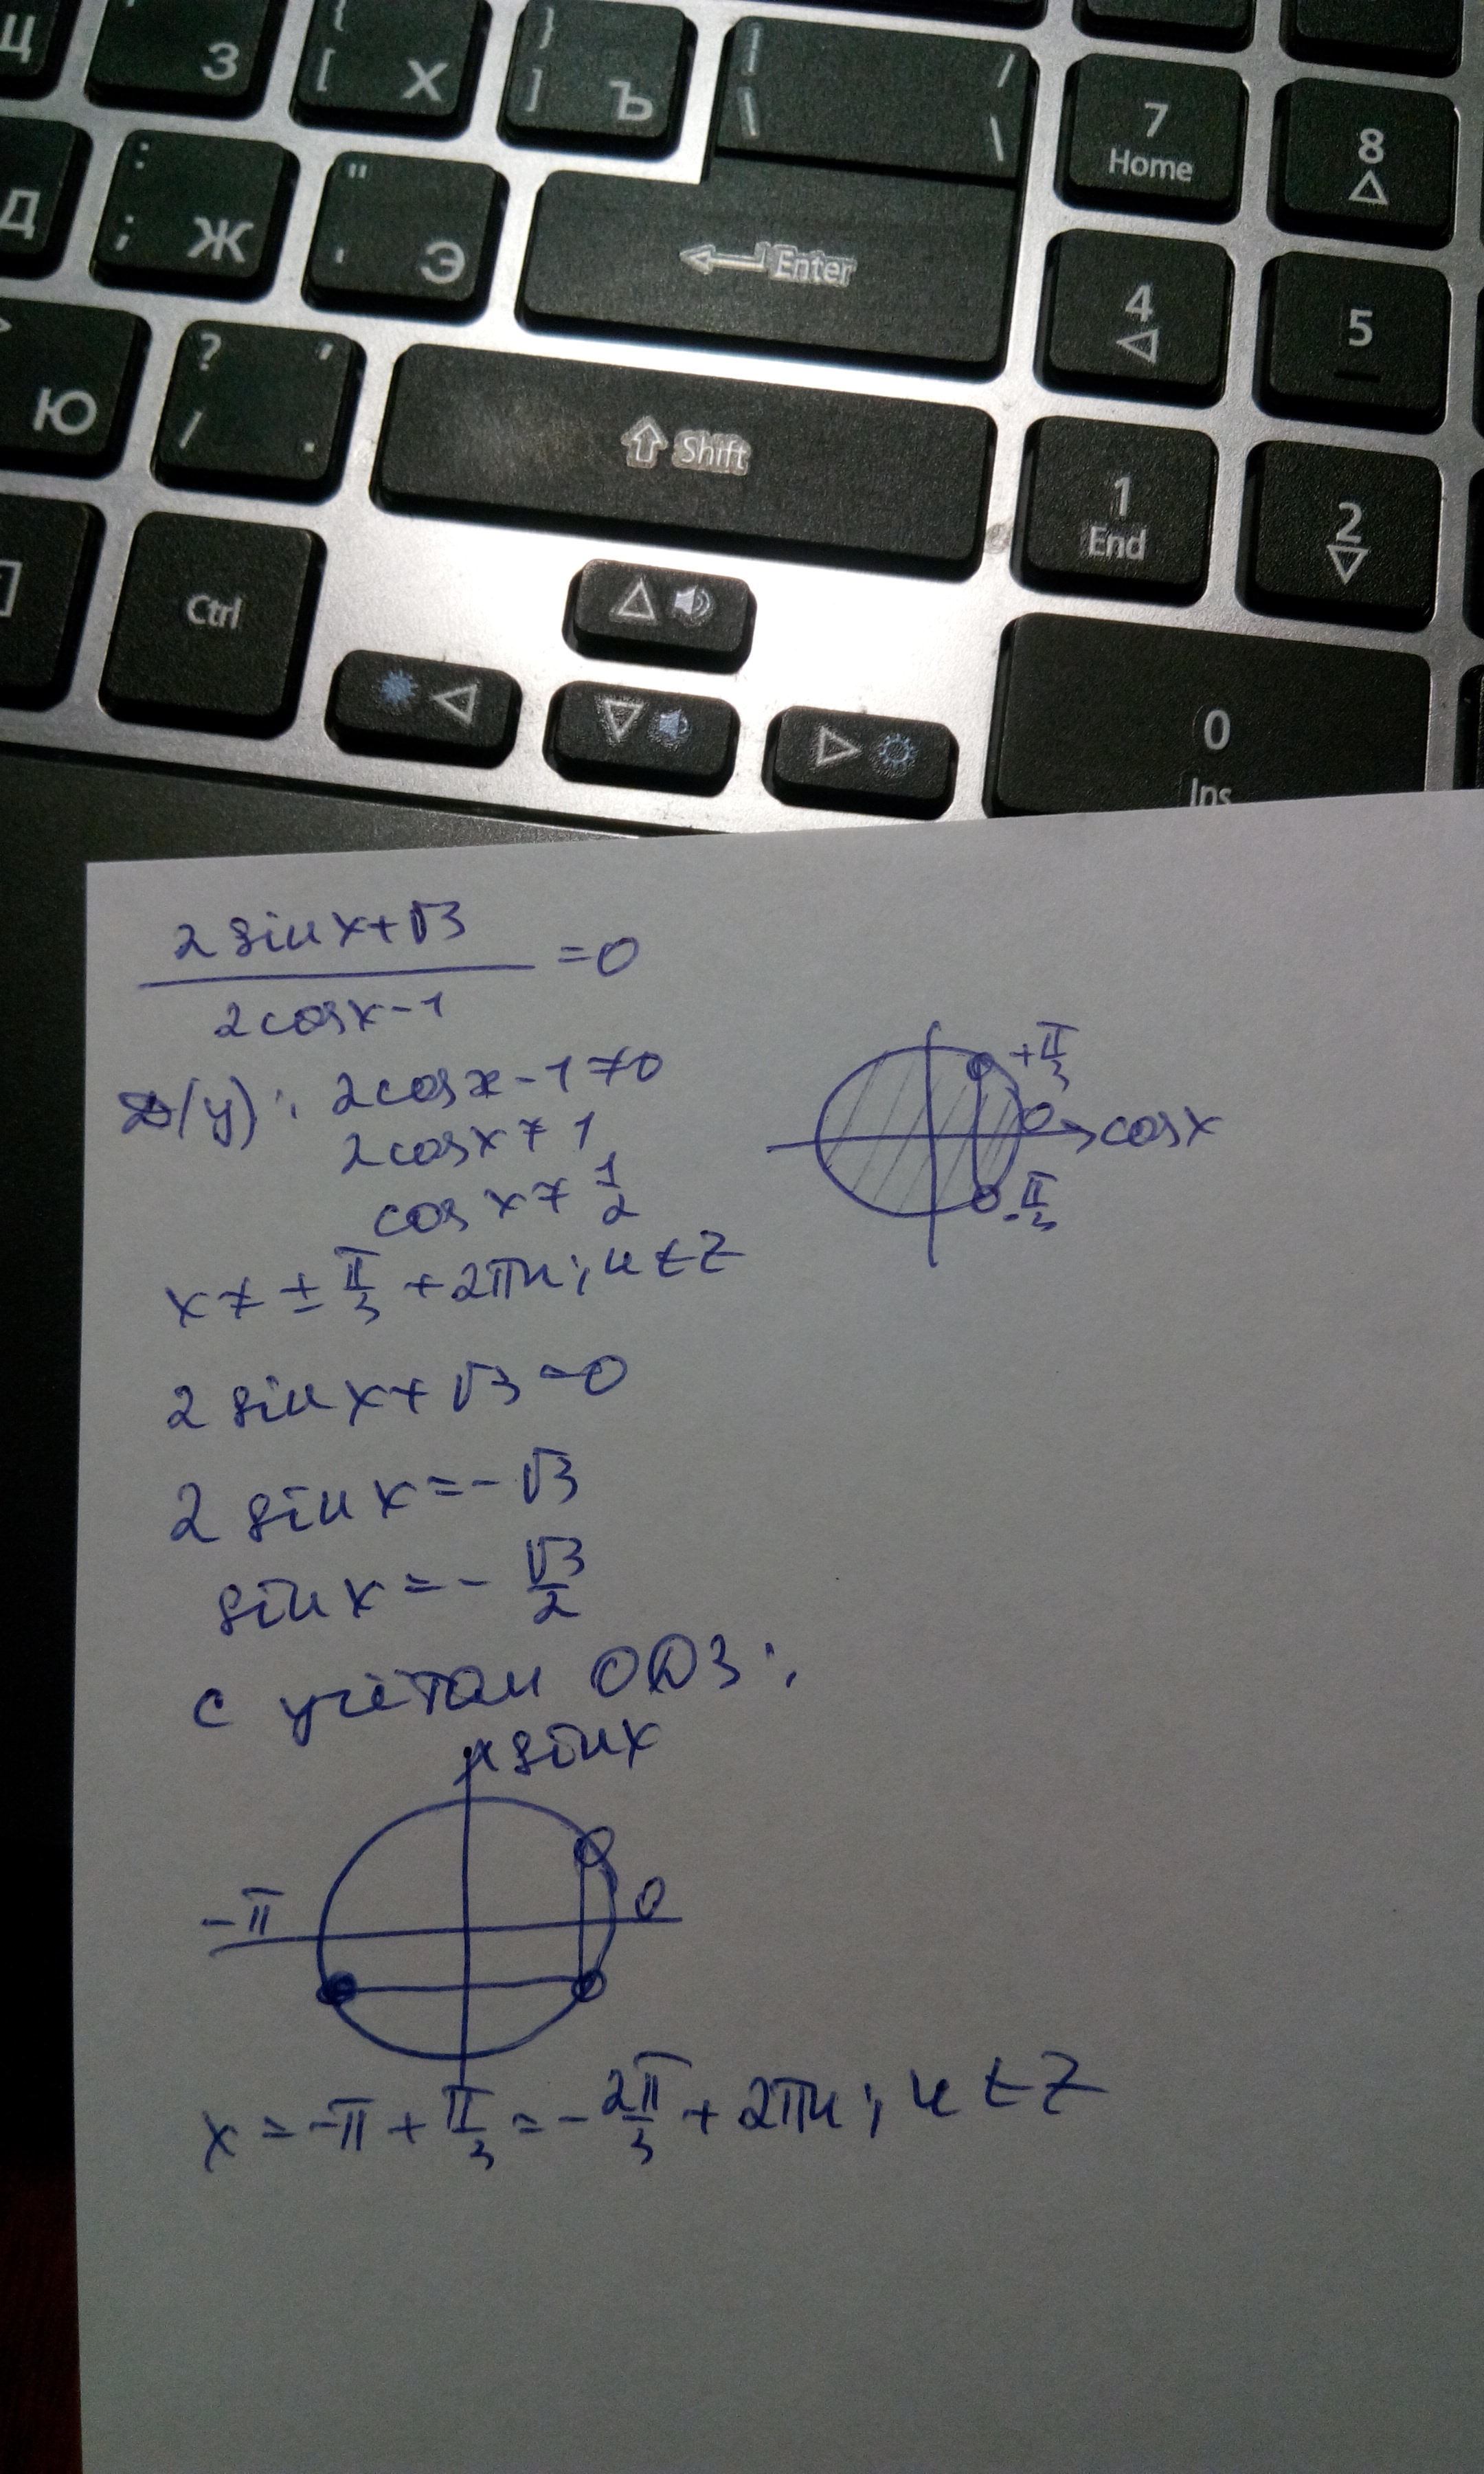 Щ З { [ Х } ] Ъ | \ / \ 7 Home 8
Д : ; Ж " ' Э Enter 4 5
> Ю ? / , . Shift 1 End 2
Ctrl 0 Ins
2 sin x + √3
/ 2 cos x - 1 = 0
D(y): 2cos x - 1 ≠ 0
2cos x ≠ 1
cos x ≠ 1/2
x ≠ ± π/3 + 2πn; n ∈ Z
+π/3
0
cos x
-π/3
2 sin x + √3 = 0
2 sin x = -√3
sin x = - √3/2
с учётом ОДЗ:
sin x
-π 0
x = -π + π/3 = - 2π/3 + 2πn; n ∈ Z